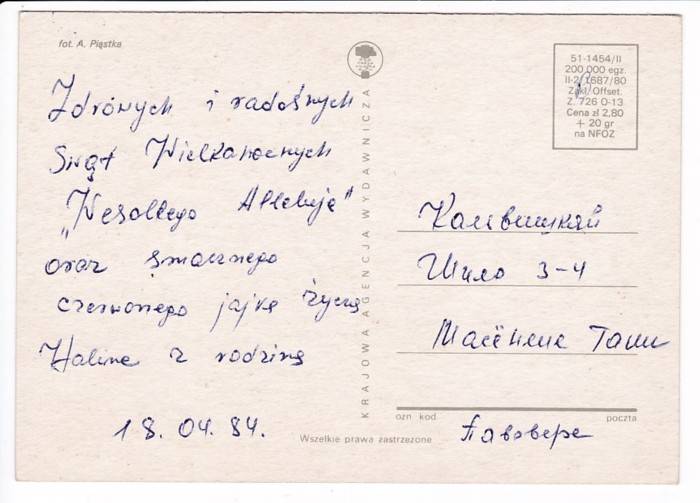 fot. A. Piąstka
Zdrowych i radosnych
Świąt Wielkanocnych
„Wesołego Alleluja"
oraz smacznego
czerwonego jajka życzą
Halina z rodziną
18.04.84.
KRAJOWA AGENCJA WYDAWNICZA
51-1454/II
200.000 egz.
II-2/1687/80
Zakł. Offset.
Z. 726 0-13
Cena zł 2,80
+ 20 gr
na NFOZ
Шило 3-4
ozn kod
poczta
Wszelkie prawa zastrzeżone